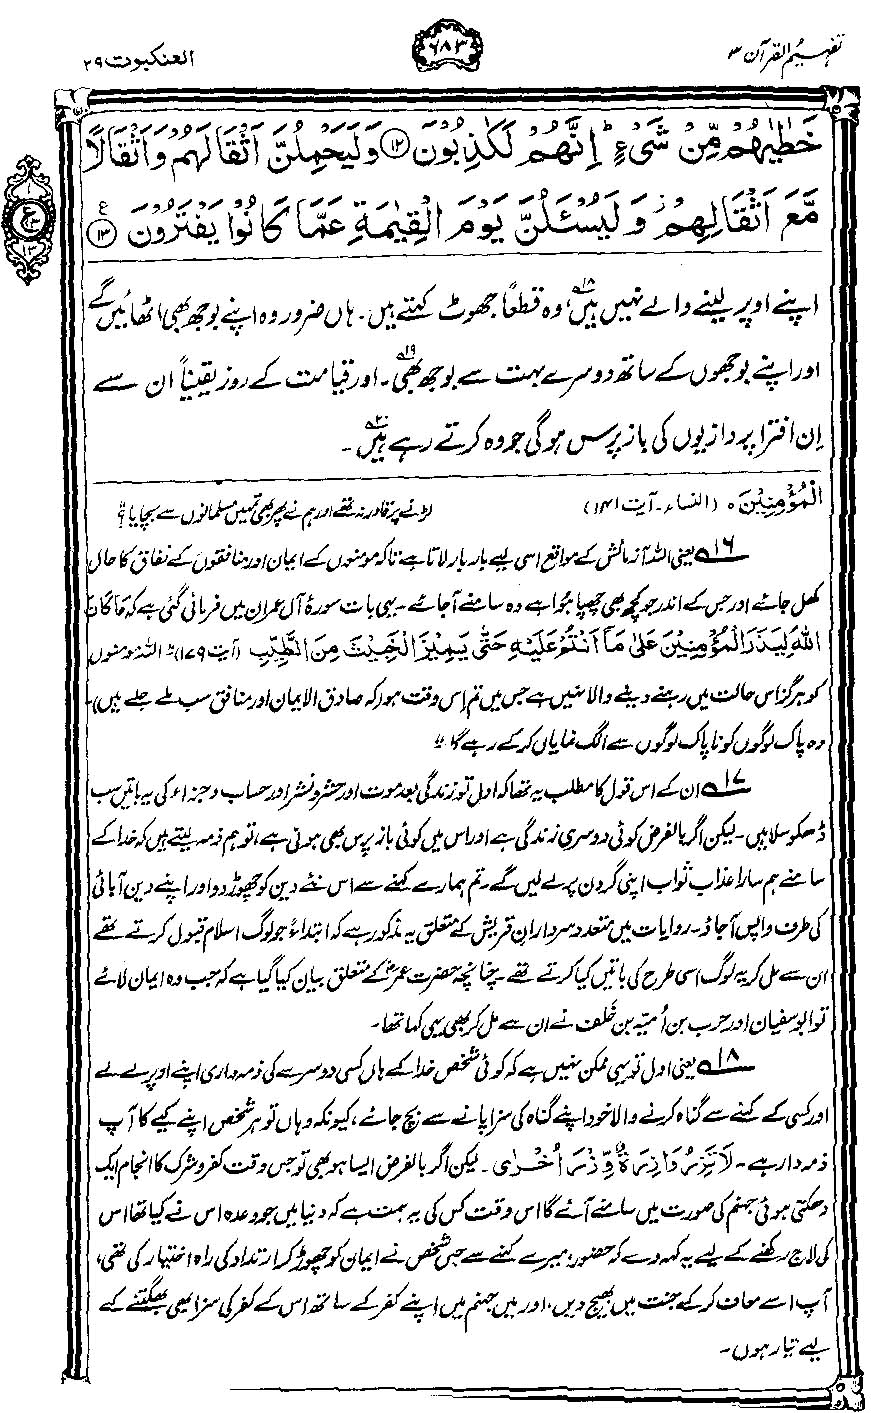 تفہیم القرآن ۳
۶۸۳
العنکبوت ۲۹
خَطٰیٰهُمْ مِّنْ شَیْءٍ ؕ اِنَّهُمْ لَكٰذِبُوْنَ ⑫ وَلَیَحْمِلُنَّ اَثْقَالَهُمْ وَاَثْقَالًا
مَّعَ اَثْقَالِهِمْ ز وَلَیُسْـَٔلُنَّ یَوْمَ الْقِیٰمَةِ عَمَّا كَانُوْا یَفْتَرُوْنَ ⑬ ع
۱
ع
۱۳
۱۳
اپنے اوپر لینے والے نہیں ہیں۱۸، وہ قطعاً جھوٹ کہتے ہیں۔ ہاں ضرور وہ اپنے بوجھ بھی اٹھائیں گے
اور اپنے بوجھوں کے ساتھ دوسرے بہت سے بوجھ بھی۱۹۔ اور قیامت کے روز یقیناً ان سے
اِن افترا پردازیوں کی باز پرس ہوگی جو وہ کرتے رہے ہیں۲۰۔
الْمُؤْمِنِیْنَ ہ (النساء۔ آیت ۱۴۱) لڑنے پر قادر نہ تھے اور ہم نے پھر بھی تمہیں مسلمانوں سے بچایا؟"
۱۶ یعنی اللہ آزمائش کے مواقع اسی لیے بار بار لاتا ہے تاکہ مومنوں کے ایمان اور منافقوں کے نفاق کا حال
کھل جائے اور جس کے اندر جو کچھ بھی چھپا ہوا ہے وہ سامنے آجائے۔ یہی بات سورۂ آل عمران میں فرمائی گئی ہے کہ مَا كَانَ
اللّٰهُ لِیَذَرَ الْمُؤْمِنِیْنَ عَلٰى مَآ اَنْتُمْ عَلَیْهِ حَتّٰى یَمِیْزَ الْخَبِیْثَ مِنَ الطَّیِّبِ (آیت ۱۷۹) "اللہ مومنوں
کو ہرگز اس حالت میں رہنے دینے والا نہیں ہے جس میں تم اِس وقت ہو (کہ صادق الایمان اور منافق سب ملے جلے ہیں)۔
وہ پاک لوگوں کو ناپاک لوگوں سے الگ نمایاں کرکے رہے گا۔"
۱۷ ان کے اس قول کا مطلب یہ تھا کہ اول تو زندگی بعد موت اور حشر و نشر اور حساب و جزاء کی یہ باتیں سب
ڈھکوسلا ہیں۔ لیکن اگر بالفرض کوئی دوسری زندگی ہے اور اس میں کوئی باز پرس بھی ہونی ہے، تو ہم ذمہ لیتے ہیں کہ خدا کے
سامنے ہم سارا عذاب ثواب اپنی گردن پر لے لیں گے۔ تم ہمارے کہنے سے اس نئے دین کو چھوڑ دو اور اپنے دین آبائی
کی طرف واپس آجاؤ۔ روایات میں متعدد سردارانِ قریش کے متعلق یہ مذکور ہے کہ ابتداءً جو لوگ اسلام قبول کرتے تھے
ان سے مل کر یہ لوگ اسی طرح کی باتیں کیا کرتے تھے۔ چنانچہ حضرت عمرؓ کے متعلق بیان کیا گیا ہے کہ جب وہ ایمان لائے
تو ابوسفیان اور حرب بن اُمیّہ بن خَلَف نے ان سے مل کر بھی یہی کہا تھا۔
۱۸ یعنی اول تو یہی ممکن نہیں ہے کہ کوئی شخص خدا کے ہاں کسی دوسرے کی ذمہ داری اپنے اوپر لے لے
اور کسی کے کہنے سے گناہ کرنے والا خود اپنے گناہ کی سزا پانے سے بچ جائے، کیونکہ وہاں تو ہر شخص اپنے کیے کا آپ
ذمہ دار ہے۔ لَا تَزِرُ وَازِرَةٌ وِّزْرَ اُخْرٰى۔ لیکن اگر بالفرض ایسا ہو بھی تو جس وقت کفر و شرک کا انجام ایک
دہکتی ہوئی جہنم کی صورت میں سامنے آئے گا اس وقت کس کی یہ ہمت ہے کہ دنیا میں جو وعدہ اس نے کیا تھا اس
کی لاج رکھنے کے لیے یہ کہہ دے کہ حضور، میرے کہنے سے جس شخص نے ایمان کو چھوڑ کر ارتداد کی راہ اختیار کی تھی،
آپ اسے معاف کرکے جنت میں بھیج دیں، اور میں جہنم میں اپنے کفر کے ساتھ اس کے کفر کی سزا بھی بھگتنے کے
لیے تیار ہوں۔